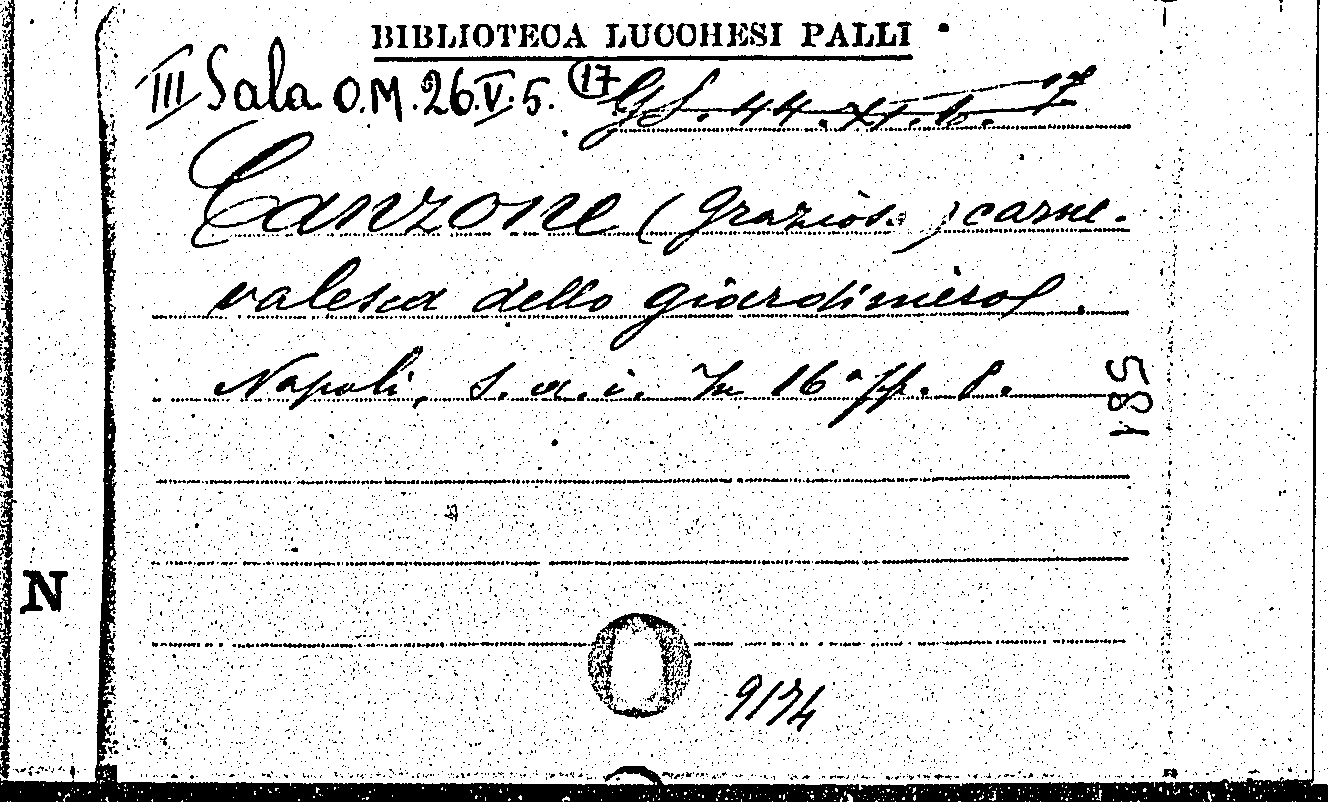 BIBLIOTECA LUCCHESI PALLI
III Sala O.M. 26.V.5. (17 GS. 44. XI. b. 17
Canzone (graziosa) carne-
valesca dello giardiniero.
Napoli, s. a. i. In 16° pp. 8.
185
N
9174